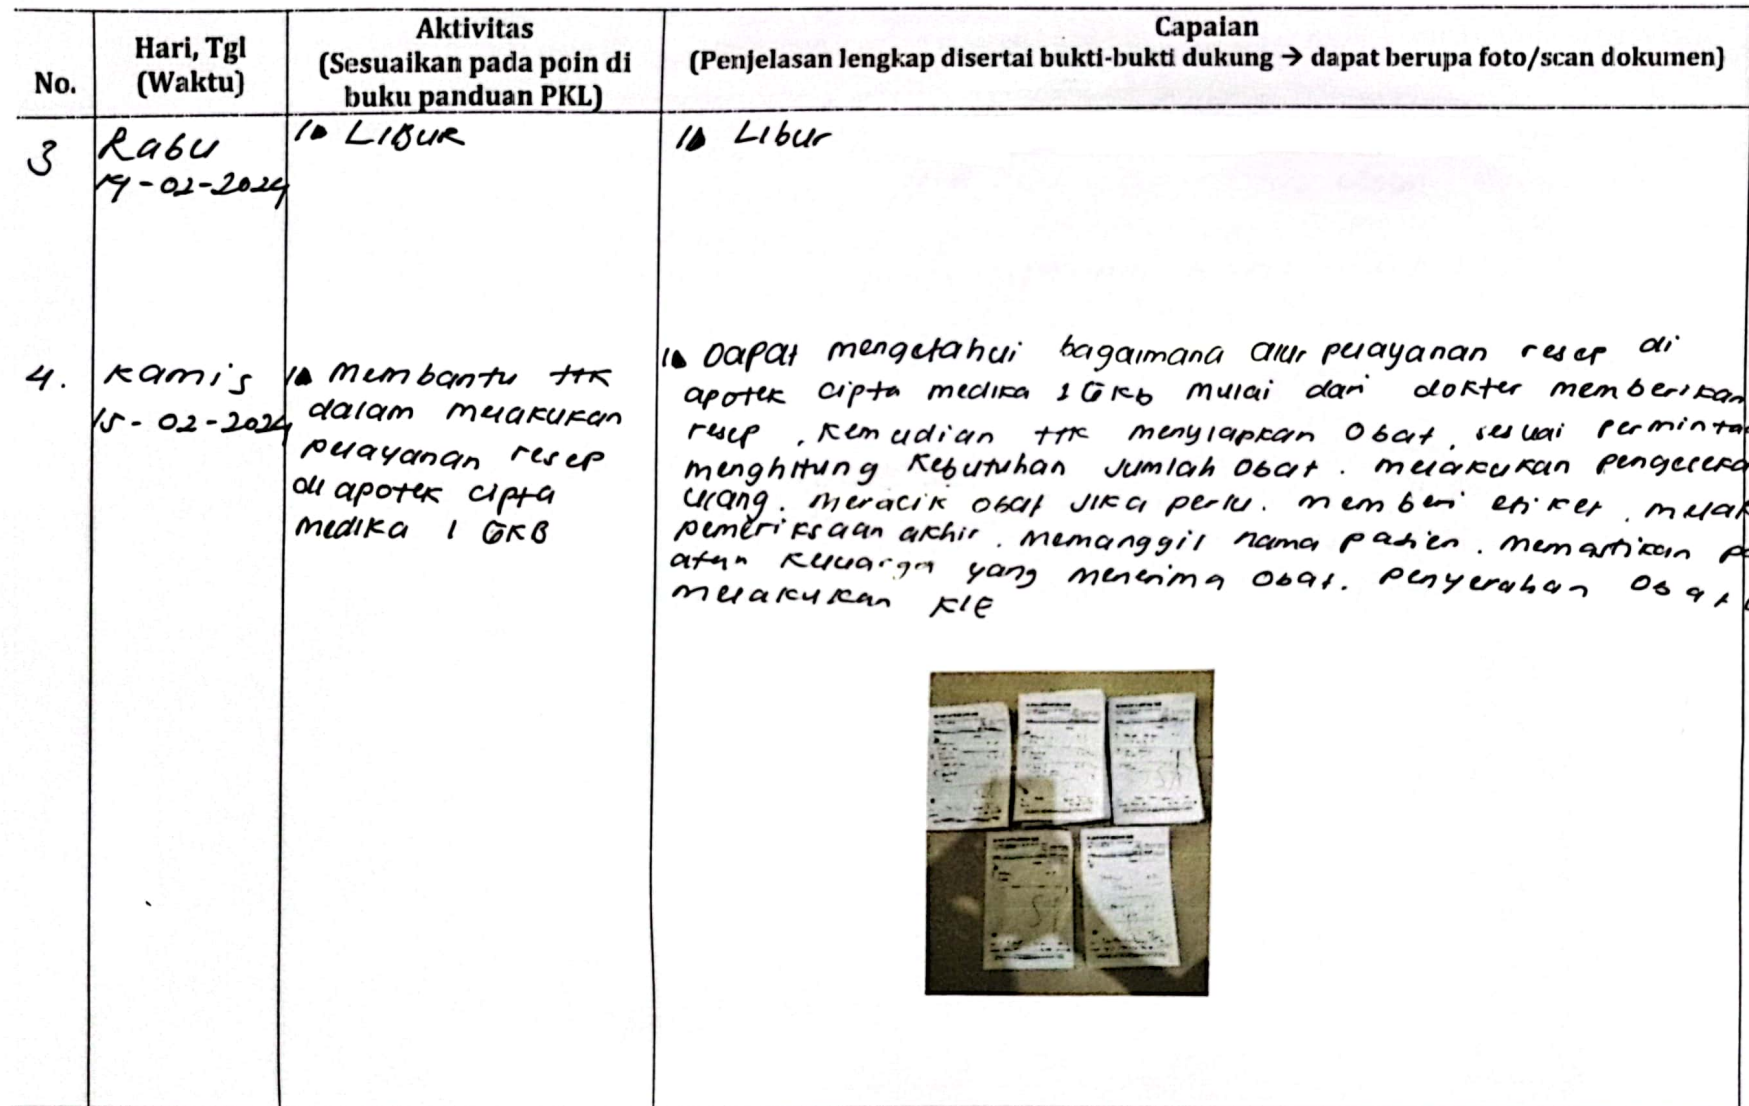 No.
Hari, Tgl
(Waktu)
Aktivitas
(Sesuaikan pada poin di
buku panduan PKL)
Capaian
(Penjelasan lengkap disertai bukti-bukti dukung → dapat berupa foto/scan dokumen)
3
Rabu
14-02-2024
1. LIBUR
1. Libur
4.
Kamis
15-02-2024
1. Membantu TTK
dalam melakukan
pelayanan resep
di apotek cipta
medika 1 GKB
1. Dapat mengetahui bagaimana alur pelayanan resep di
apotek cipta medika 1 GKB mulai dari dokter memberikan
resep, kemudian TTK menyiapkan obat, sesuai
menghitung kebutuhan jumlah obat. melakukan
ulang. meracik obat jika perlu. memberi etiket.
pemeriksaan akhir. memanggil nama pasien. memastikan
atau keluarga yang menerima obat. penyerahan obat
melakukan KIE